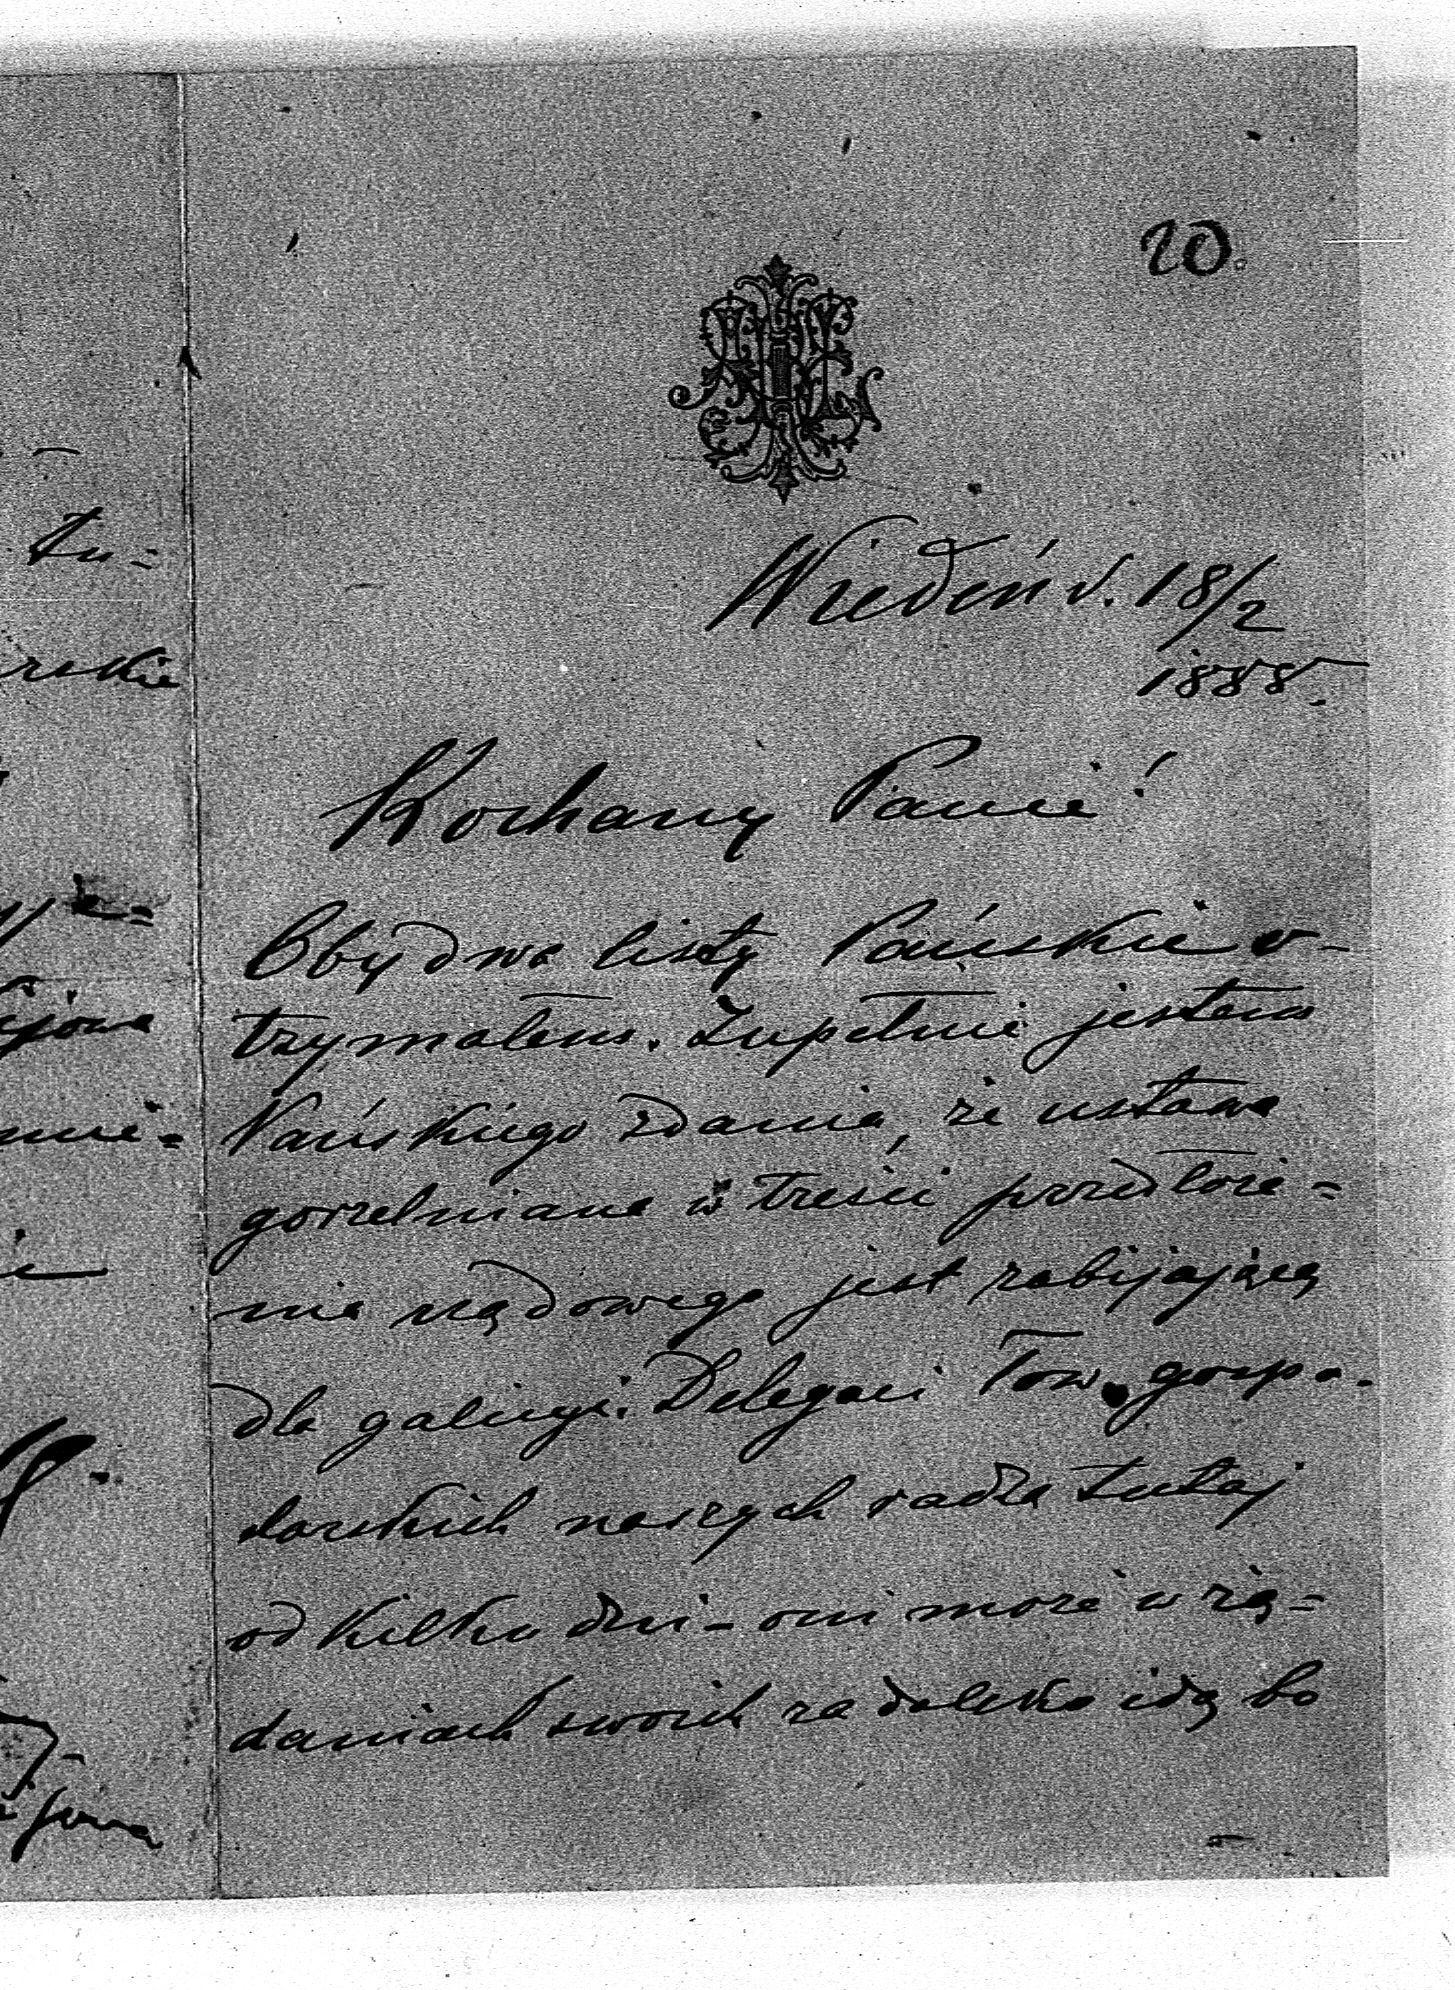 20.
Wiedeń d. 18/2
1888.
Kochany Panie!
Obydwa listy Pańskie o-
trzymałem. Zupełnie jestem
Pańskiego zdania, że ustawa
gorzelniana w treści przedłoże=
nia rządowego jest zabijającą
dla galicyi. Delegaci Tow. gospo-
darskich naszych radzą tutaj
od kilku dni – oni może w żą=
daniach swoich za daleko idą bo
tu=
rskie